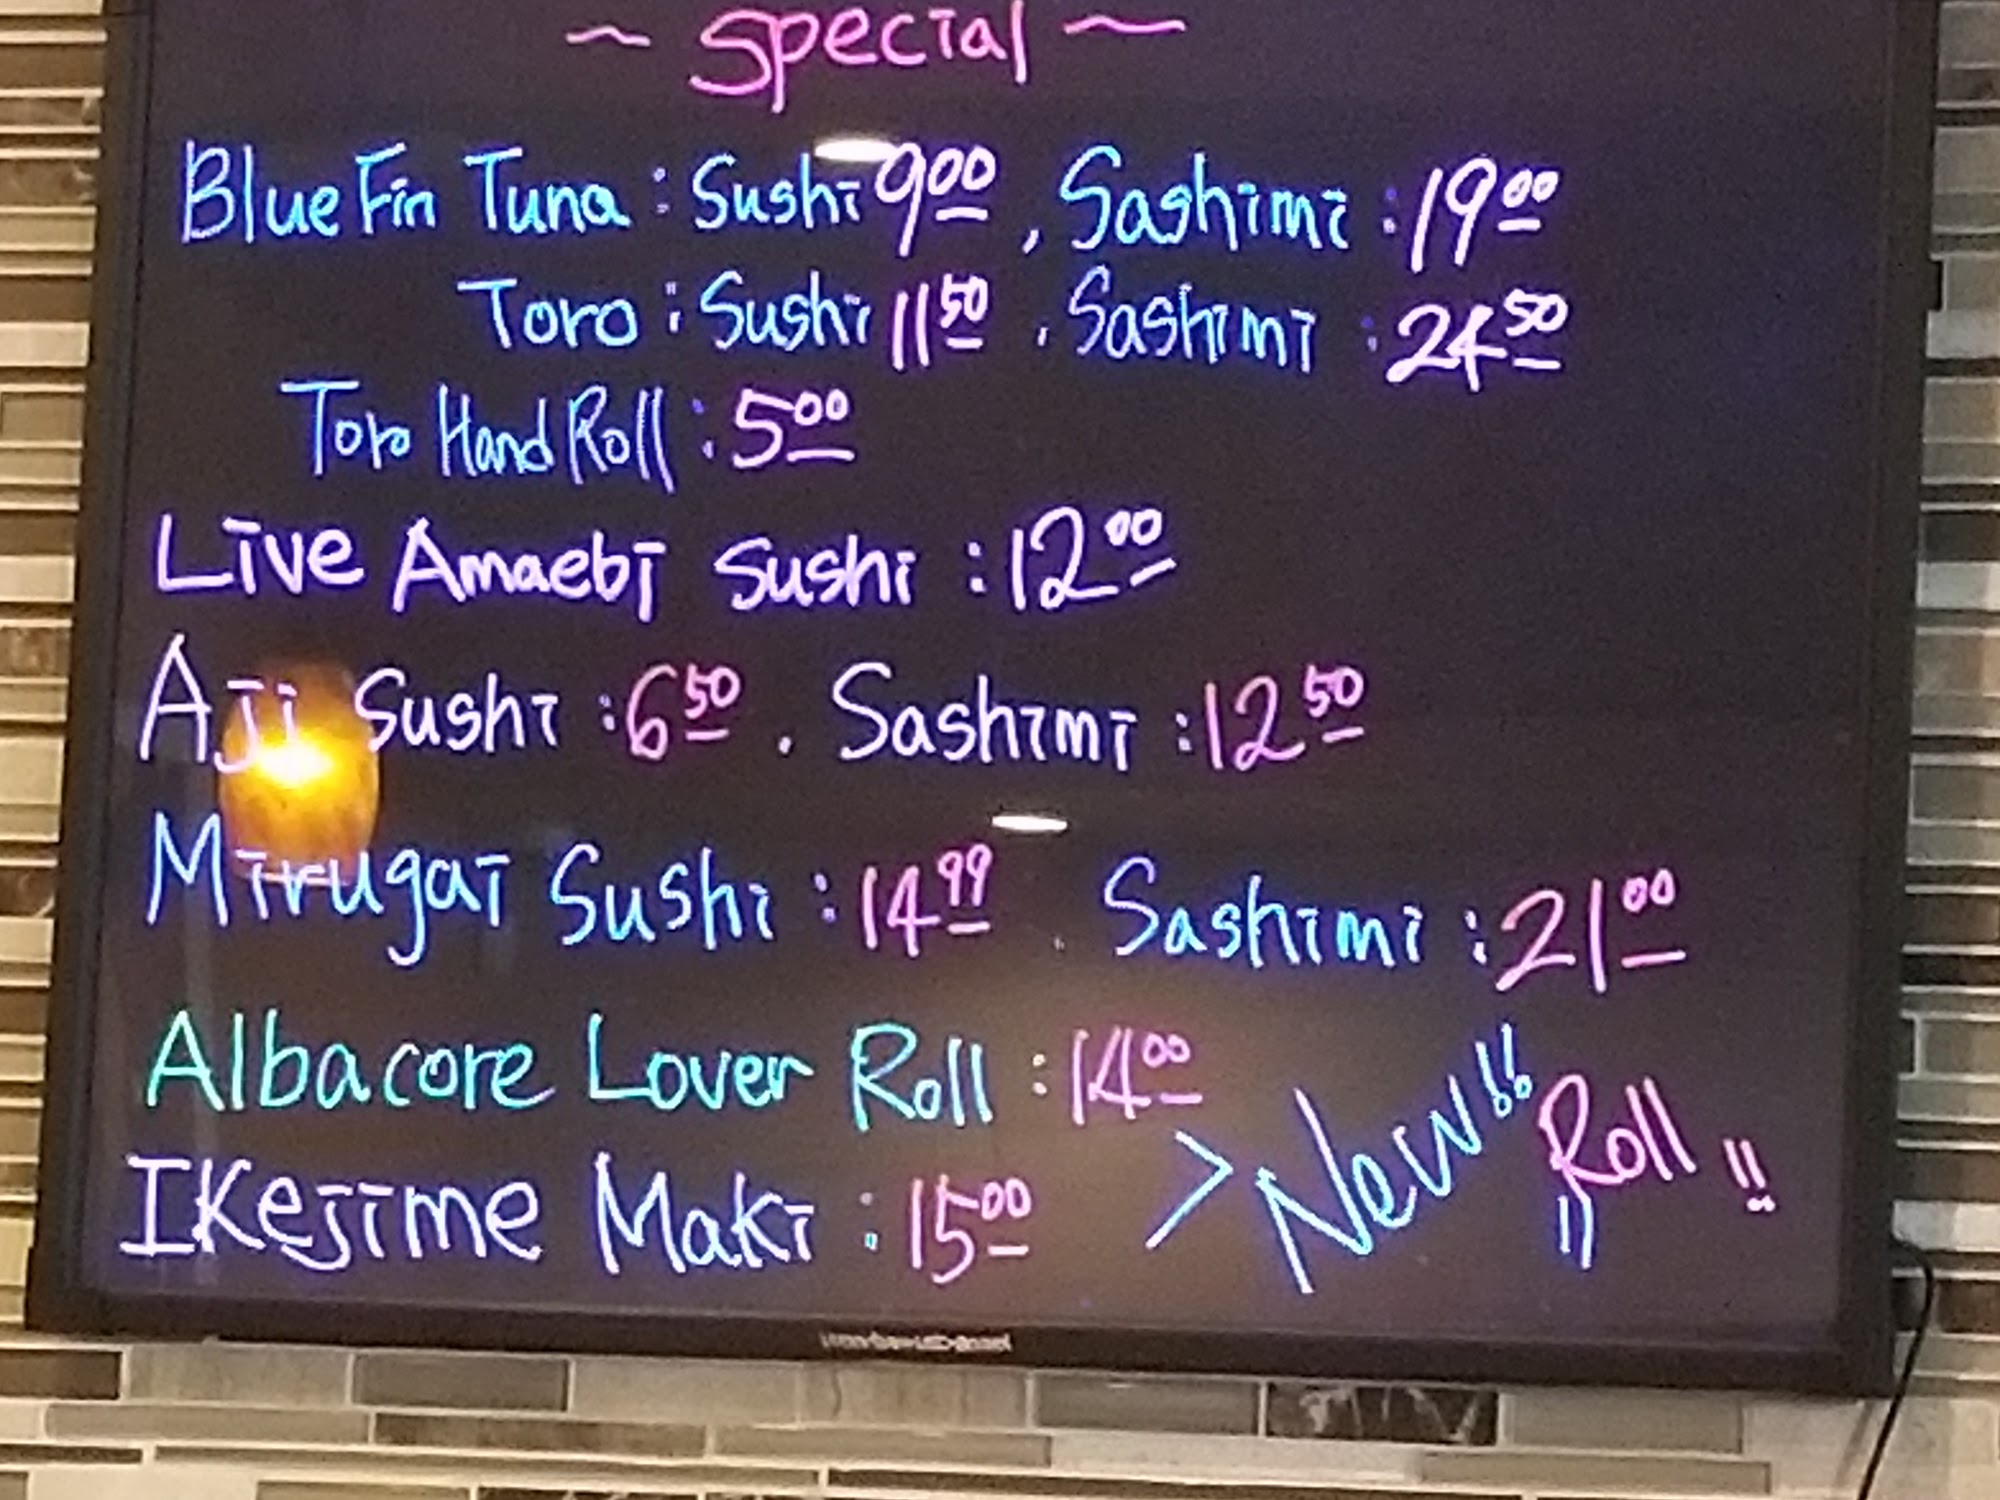 ~ Special ~
Blue Fin Tuna : Sushi 9.00 , Sashimi : 19.00
Toro : Sushi 11.50 , Sashimi : 24.50
Toro Hand Roll : 5.00
Live Amaebi Sushi : 12.00
Aji Sushi : 6.50 . Sashimi : 12.50
Mirugai Sushi : 14.99 . Sashimi : 21.00
Albacore Lover Roll : 14.00
Ikejime Maki : 15.00
> New!! Roll!!